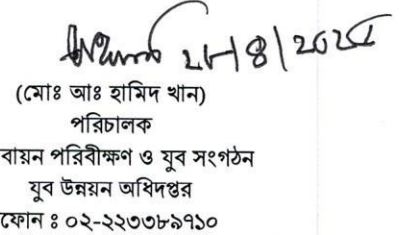 (মোঃ আঃ হামিদ খান)
পরিচালক
বায়ন পরিবীক্ষণ ও যুব সংগঠন
যুব উন্নয়ন অধিদপ্তর
ফোন ঃ ০২-২২৩৩৮৯৭১০